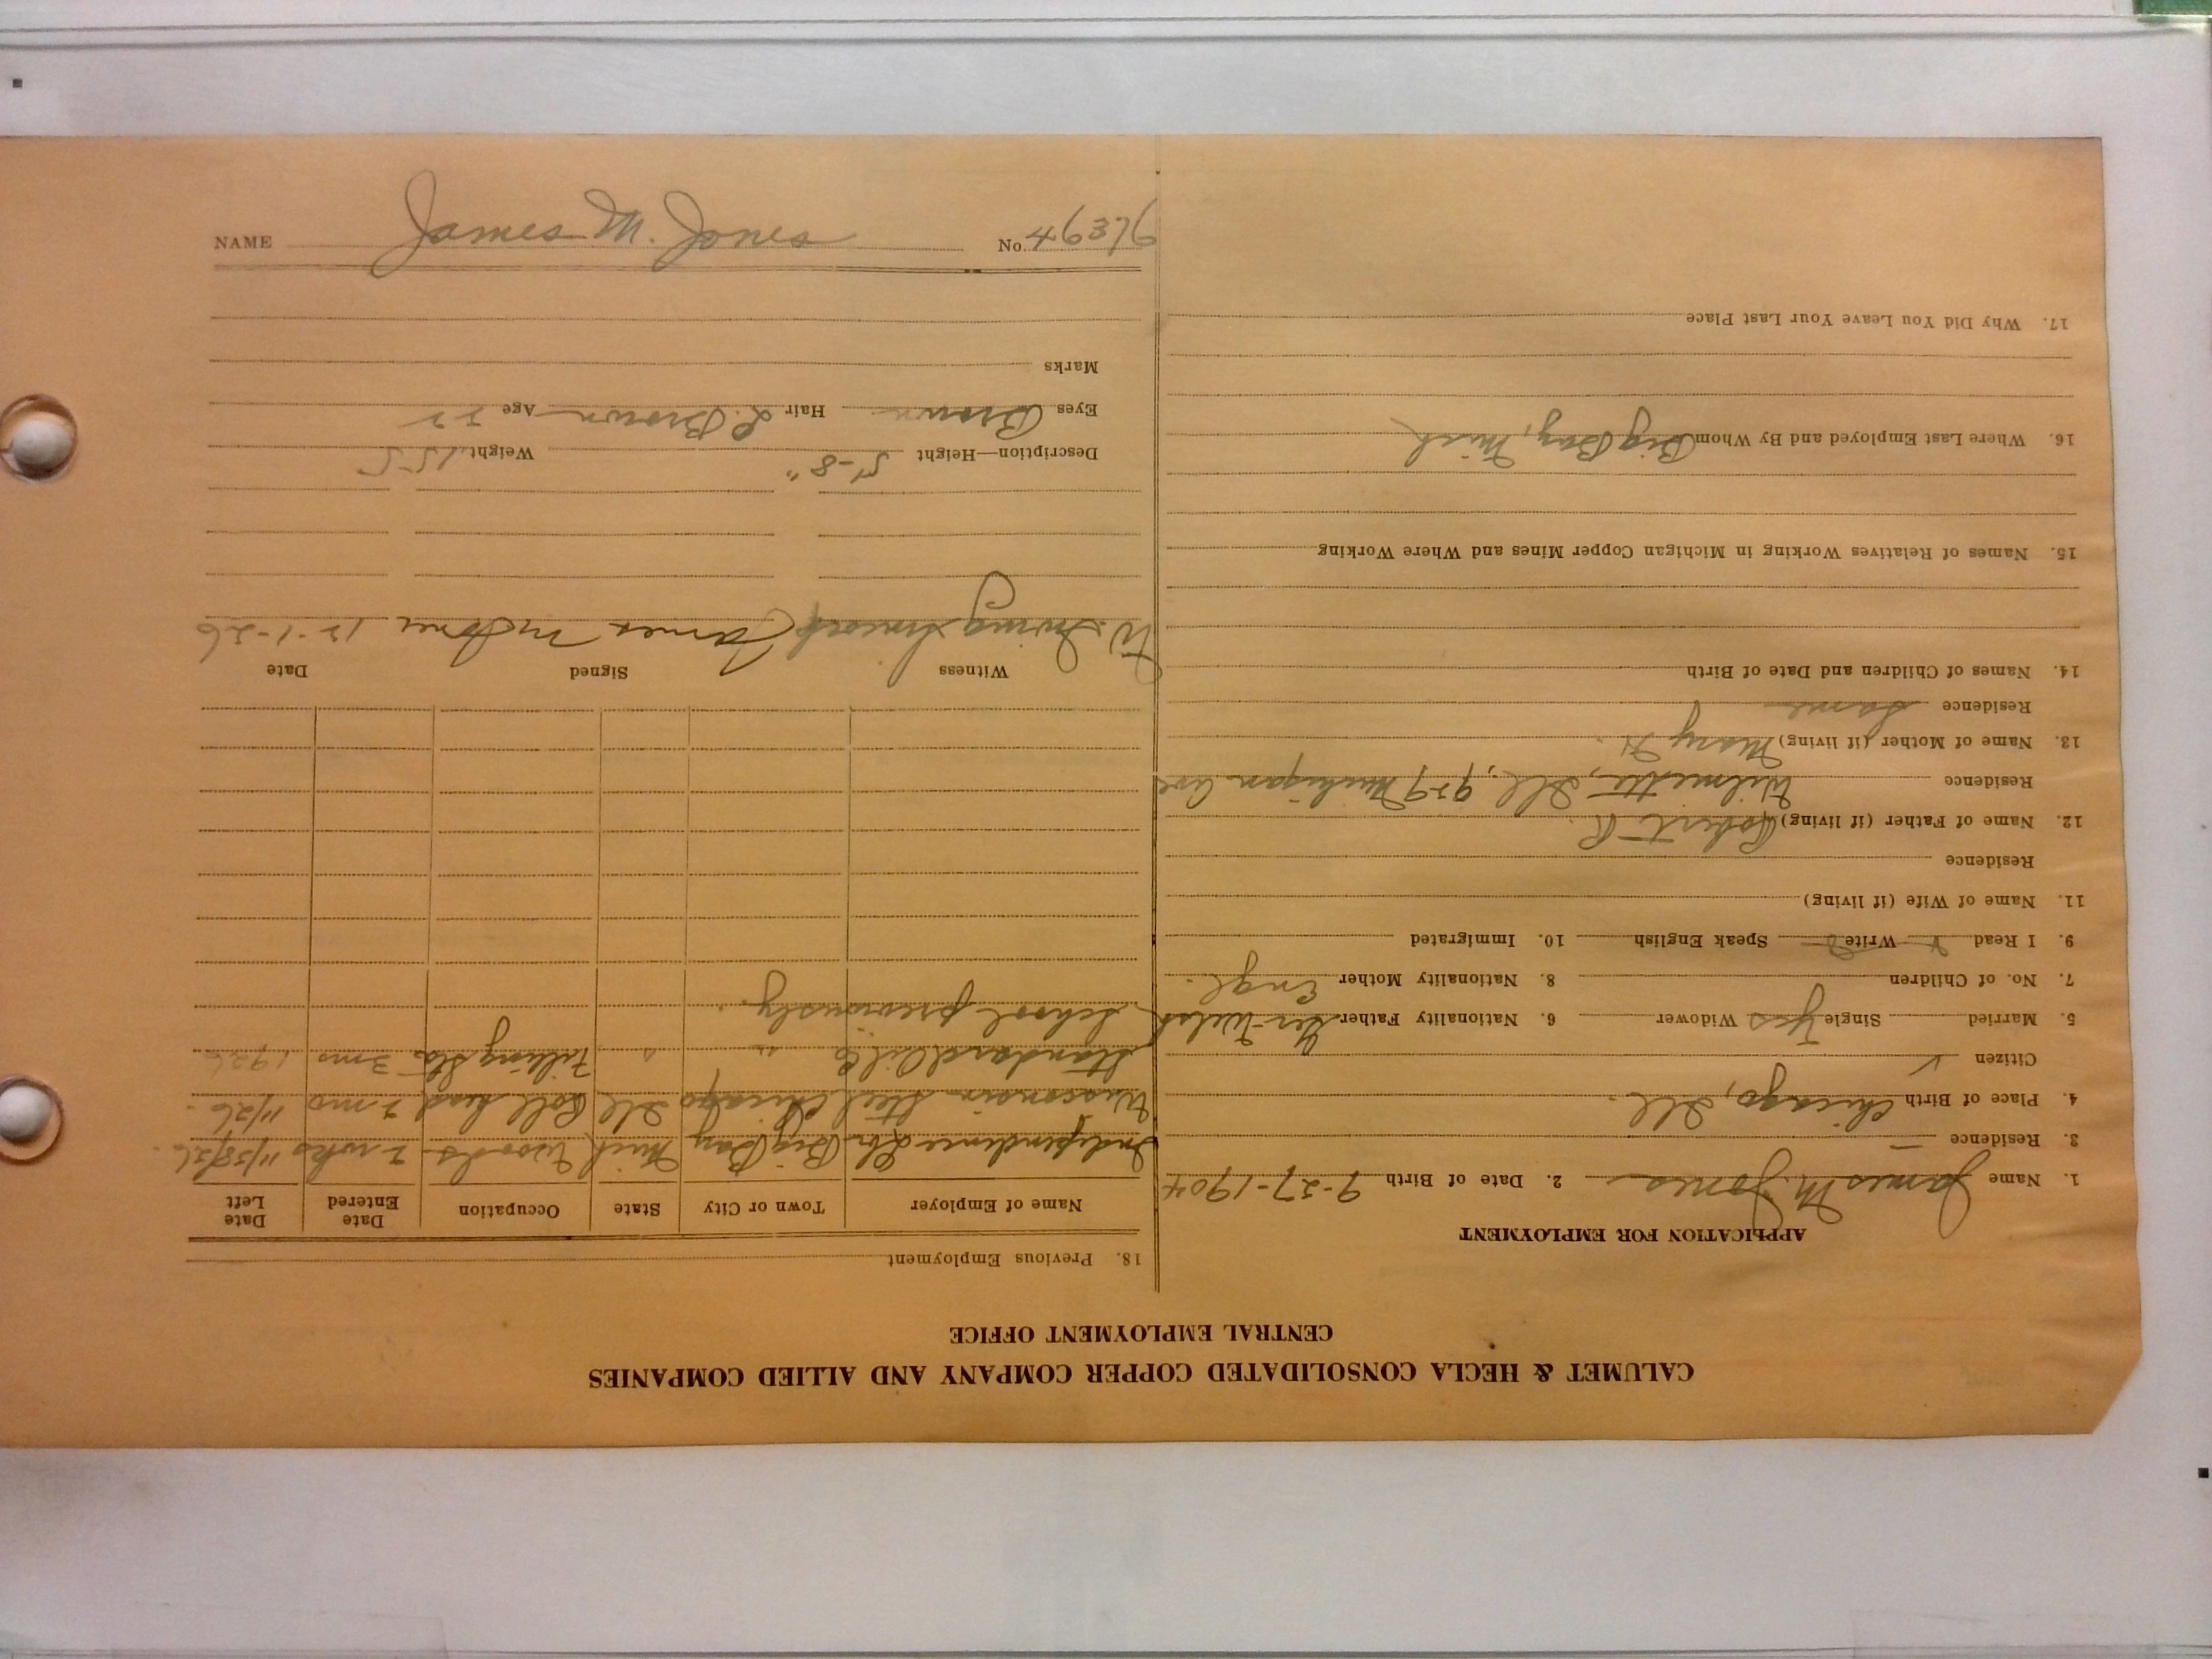 CALUMET & HECLA CONSOLIDATED COPPER COMPANY AND ALLIED COMPANIES
CENTRAL EMPLOYMENT OFFICE
APPLICATION FOR EMPLOYMENT
1. Name James M. Jones 2. Date of Birth 9-27-1904
3. Residence —
4. Place of Birth Chicago, Ill.
Citizen ✓
5. Married Single Yes Widower 6. Nationality Father Ger-Welsh
7. No. of Children 8. Nationality Mother Engl.
9. I Read Write Speak English 10. Immigrated
11. Name of Wife (if living)
Residence
12. Name of Father (if living) Robert R.
Residence Wilmette, Ill, 929 Michigan Ave
13. Name of Mother (if living) Mary H.
Residence Same
14. Names of Children and Date of Birth
15. Names of Relatives Working in Michigan Copper Mines and Where Working
16. Where Last Employed and By Whom Big Bay, Mich
17. Why Did You Leave Your Last Place
18. Previous Employment
Name of Employer Town or City State Occupation Date Entered Date Left
Independence Lbr Big Bay Mich Woods 2 wks
Wisconsin Steel Chicago Ill Roll hand 2 mo 11/26.
Standard Oil Co " " Filling Sta 3 mo 1926
School previously.
Witness Signed Date
W. Irving James M Jones 12-1-26
Description—Height 5'-8" Weight 155
Eyes Brown Hair L. Brown Age 22
Marks
NAME James M. Jones No. 46376